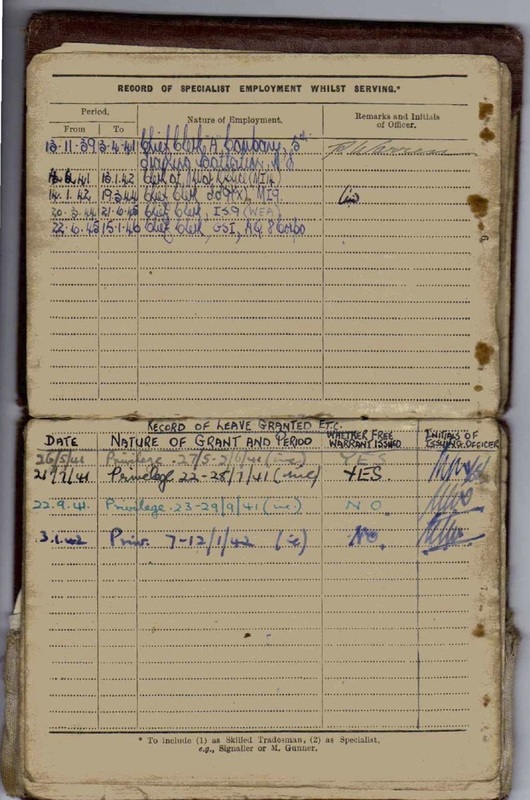 RECORD OF SPECIALIST EMPLOYMENT WHILST SERVING.*
Period. Nature of Employment. Remarks and Initials of Officer.
From To
13.11.39 3.4.41 Chief Clerk A Company, 5th
Battalion,
13.1.42 Clerk at War Office (MI9)
14.1.42 19.3.44 Chief Clerk, MI9.
20.3.44 21.6.45 Chief Clerk, IS9 (WEA)
22.6.45 15.1.46 Chief Clerk, GSI, HQ 8 Corps
RECORD OF LEAVE GRANTED ETC.
DATE NATURE OF GRANT AND PERIOD WHETHER FREE WARRANT ISSUED INITIALS OF ISSUING OFFICER
26/5/41 Privilege - 27/5-2/6/41 (inc) YES
21/7/41 Privilege 22-28/7/41 (inc) YES.
22.9.41. Privilege 23-29/9/41 (inc) NO.
3.1.42 Priv. 7-12/1/42 (ic) No.
* To include (1) as Skilled Tradesman, (2) as Specialist,
e.g., Signaller or M. Gunner.